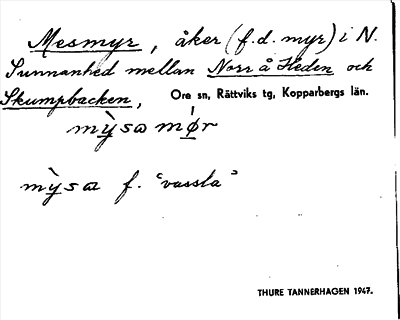 Mesmyr, åker (f.d. myr) i N.
Sunnanhed mellan Norr å Heden och
Skumpbacken, Ore sn, Rättviks tg, Kopparbergs län.
mỳsa mǿr
mỳsa f. "vassla"
THURE TANNERHAGEN 1947.